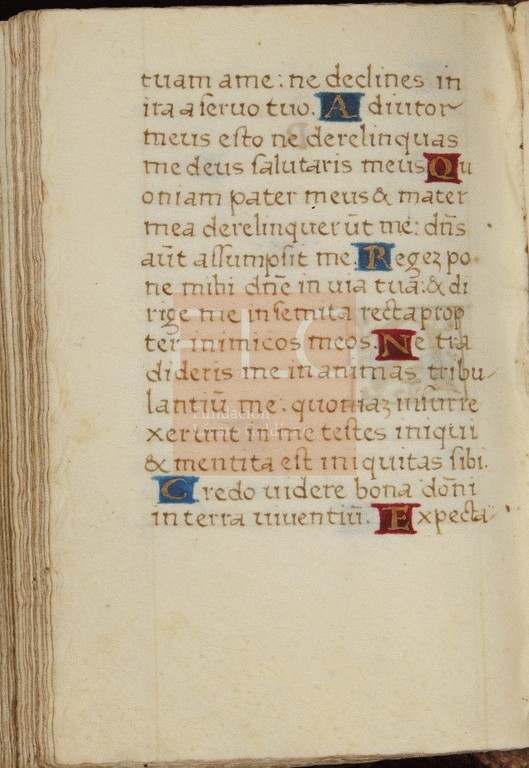 tuam ame: ne declines in
ira a seruo tuo. Adiutor
meus esto ne derelinquas
me deus salutaris meus Qu
oniam pater meus & mater
mea derelinquerūt me: dn̄s
aūt assumpsit me. Regeꝫ po
ne mihi dn̄e in uia tua: & di
rige me in semita recta prop
ter inimicos meos. Ne tra
dideris me in animas tribu
lantiū me. quoniaꝫ insurre
xerunt in me testes iniqui
& mentita est iniquitas sibi.
Credo uidere bona don̄i
in terra uiuentiū. Expecta
FLC
Fundación